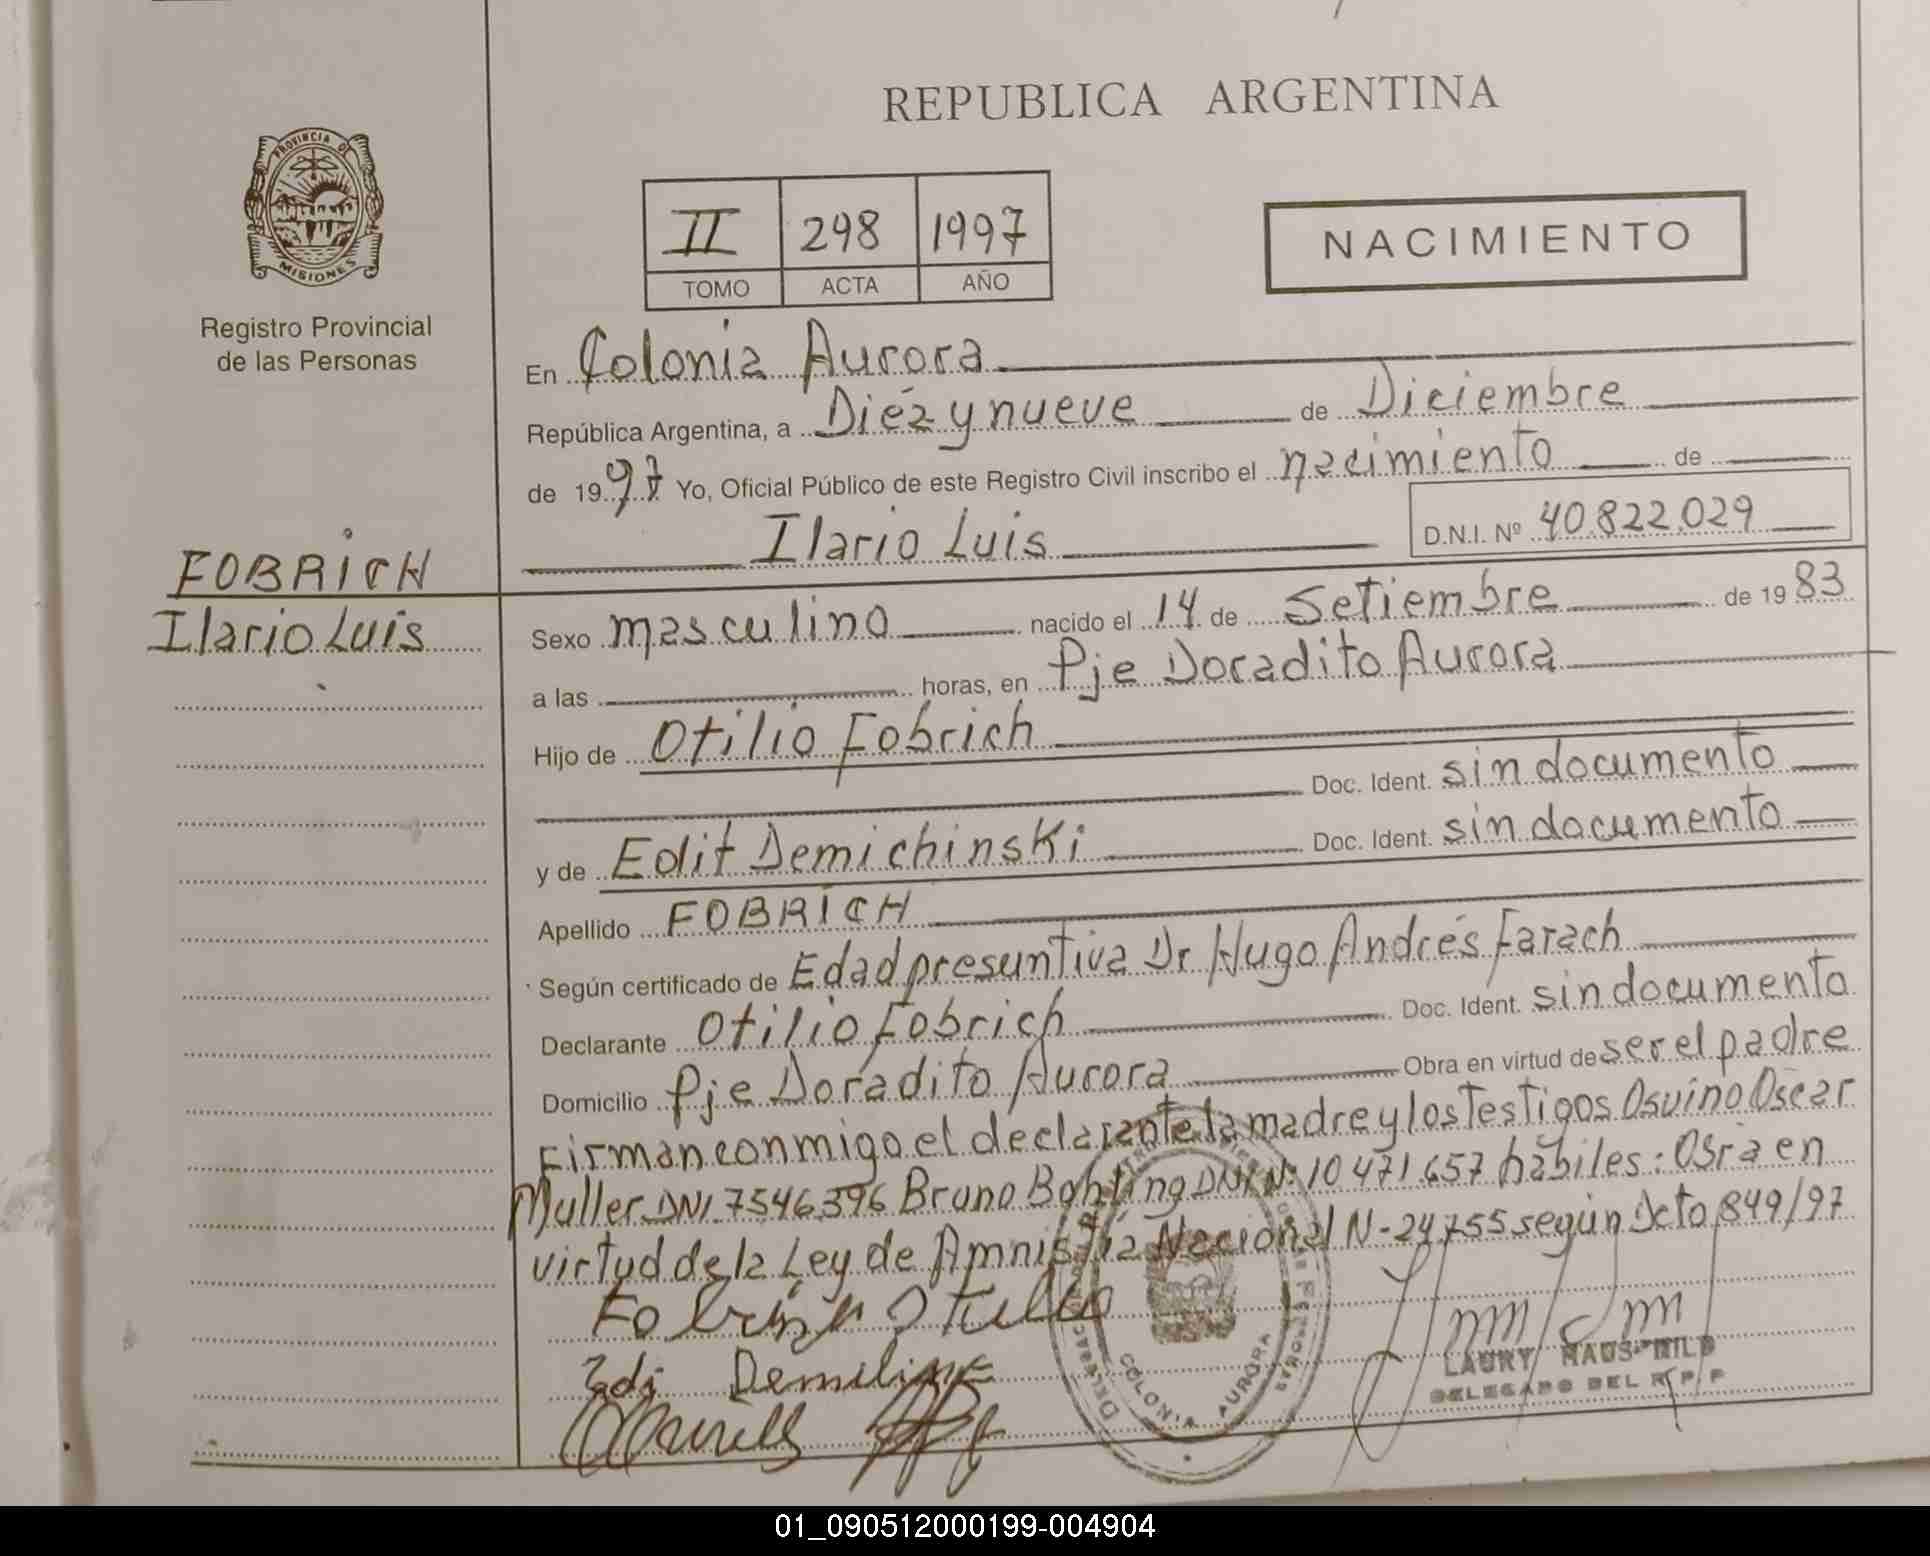 REPUBLICA ARGENTINA
PROVINCIA DE
MISIONES
Registro Provincial
de las Personas
II 298 1997
TOMO ACTA AÑO
NACIMIENTO
En Colonia Aurora
República Argentina, a Diéz y nueve de Diciembre
de 1997 Yo, Oficial Público de este Registro Civil inscribo el nacimiento de
Ilario Luis D.N.I. Nº 40.822.029
FOBRICH
Ilario Luis
Sexo masculino nacido el 14 de Setiembre de 1983
a las horas, en Pje Doradito Aurora
Hijo de Otilio Fobrich
Doc. Ident. sin documento
y de Edit Demichinski Doc. Ident. sin documento
Apellido FOBRICH
Según certificado de Edad presuntiva Dr Hugo Andrés Farach
Declarante Otilio Fobrich Doc. Ident. sin documento
Domicilio Pje Doradito Aurora Obra en virtud de ser el padre
Firman conmigo el declarante la madre y los Testigos Osvino Oscar
Muller DNI 7546.396 Bruno Bohting DNI Nº 10 471.657 hábiles: Obra en
virtud de la Ley de Amnistía Nacional N-24755 según Dcto 849/97
COLONIA AURORA
LAURY HAUSTHILD
DELEGADO DEL R.P.P
01_090512000199-004904